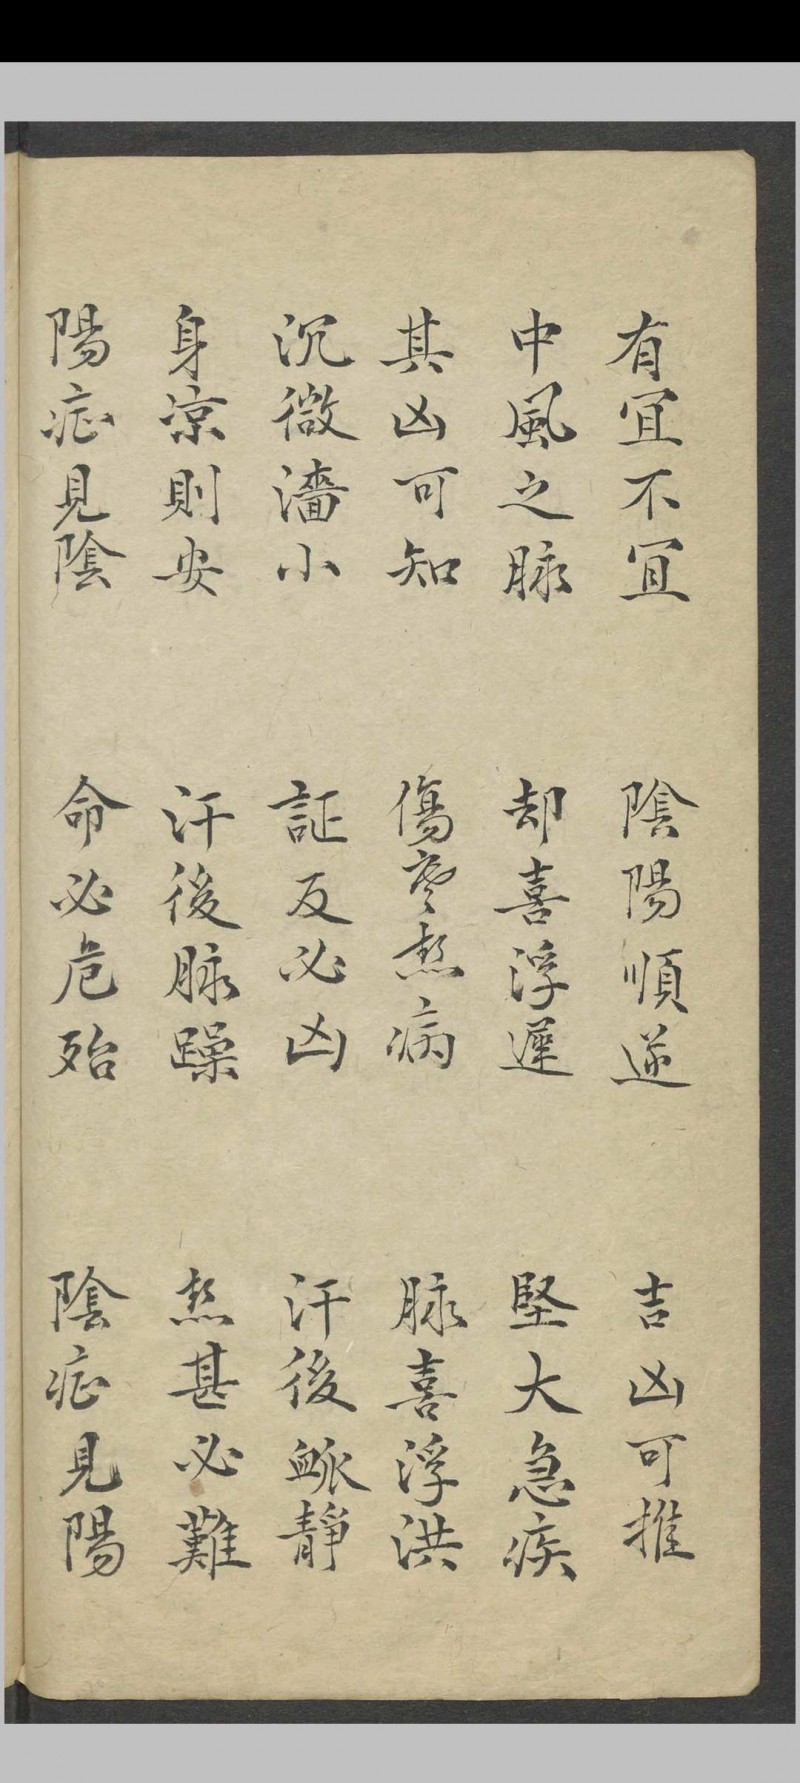 有冝不冝 陰陽順逆 吉凶可推
中風之脉 却喜浮遲 堅大急疾
其凶可知 傷寒熱病 脉喜浮洪
沉微濇小 証反必凶 汗後衇靜
身涼則安 汗後脉躁 熱甚必難
陽症見陰 命必危殆 陰症見陽